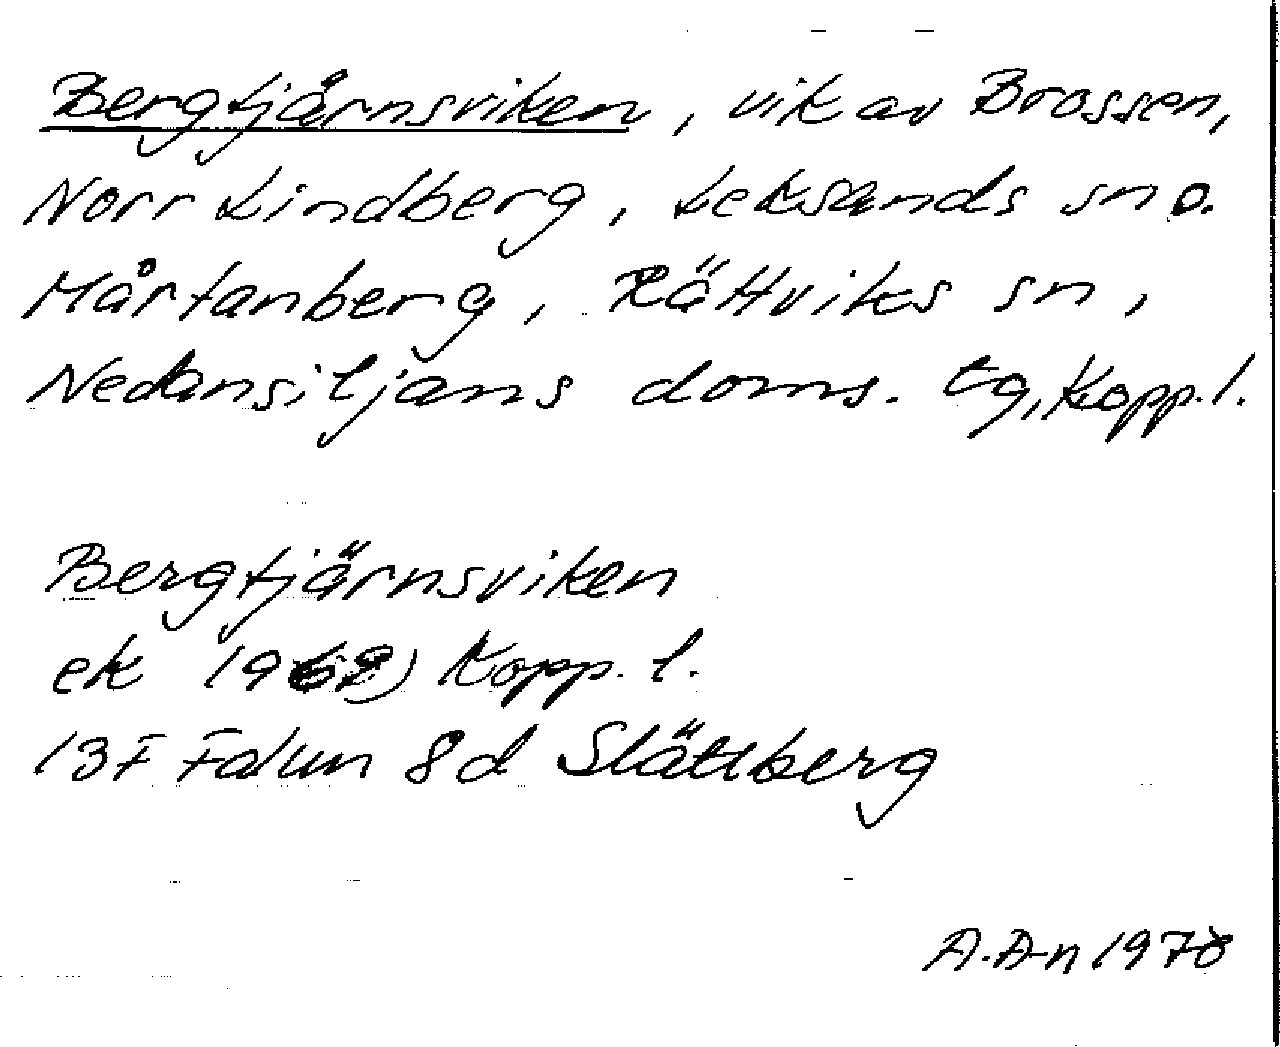 Bergtjärnsviken, vik av Brossen,
Norr Lindberg, Leksands sn o.
Mårtanberg, Rättviks sn,
Nedansiljans doms. tg, Kopp. l.
Bergtjärnsviken
ek 1962) Kopp. l.
13F Falun 8d Slättberg
A.A-n 1978